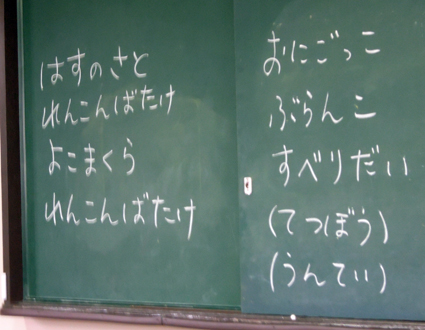 はすのさと
れんこんばたけ
よこまくら
れんこんばたけ
おにごっこ
ぶらんこ
すべりだい
(てつぼう)
(うんてい)